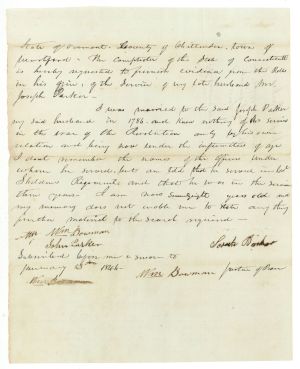 State of Vermont County of Chittenden Town of
The Comptroller of the State of Connecticut
is hereby requested to furnish evidence from the Rolls
in his office of the Service of my late husband Mr
Joseph Parker
I was married to the said Joseph Parker
my said husband in 1786 and know nothing of his service
in the war of the Revolution only by his own
relation and being now under the infirmities of age
I dont remember the names of the officers under
whom he served but am told that he served in Col
Sheldons Regiment and that he was in the service
three years I am now years old and
my memory does not enable me to state any thing
further material to the search required
Wm Bowman
John Parker
Sarah Parker
Subscribed before me & sworn to
1846
Wm Bowman Justice of Peace
Wm Bowman